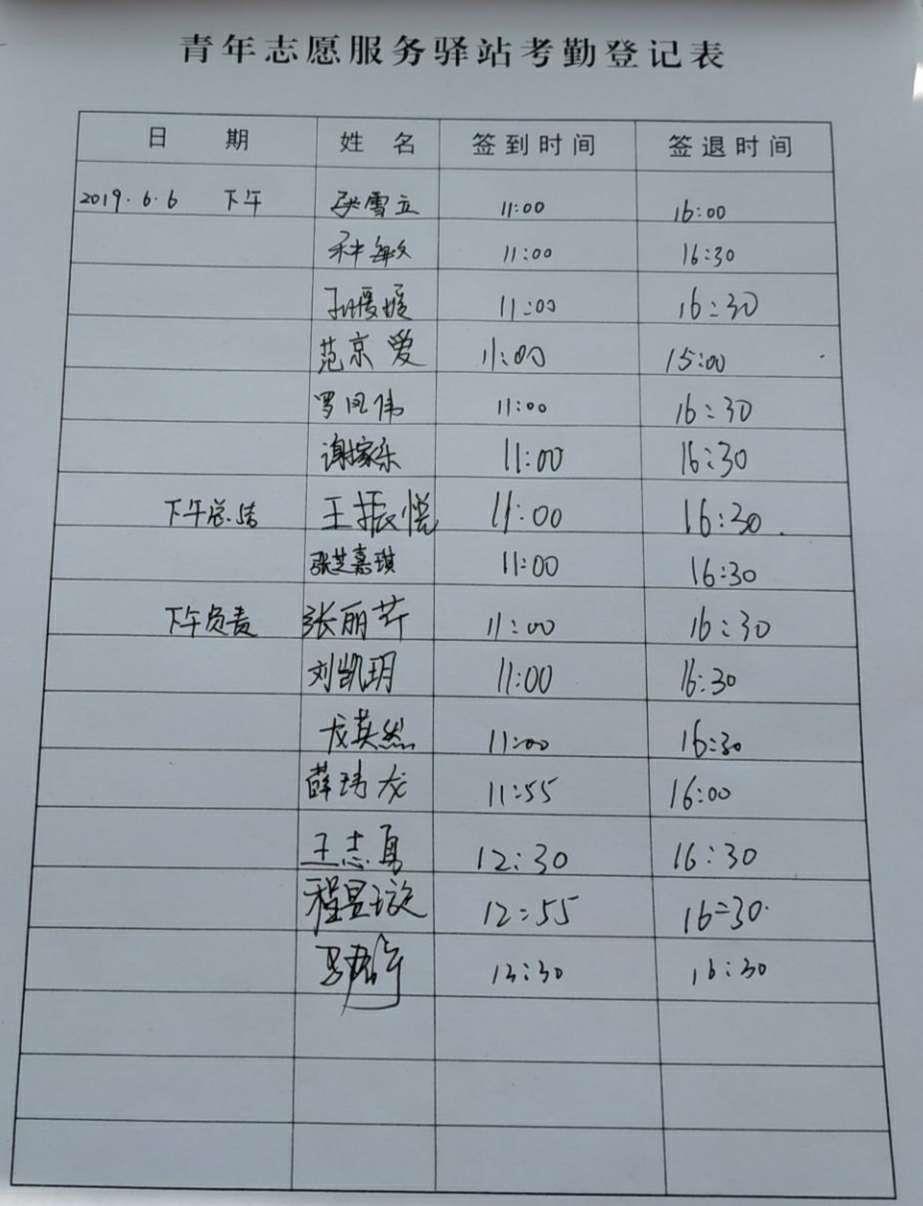 青年志愿服务驿站考勤登记表
日 期 姓 名 签到时间 签退时间
2019.6.6 下午 张雪立 11:00 16:00
种敏 11:00 16:30
11:00 16:30
范京爱 11:00 15:00
罗凤伟 11:00 16:30
谢家乐 11:00 16:30
下午总结 王振悦 11:00 16:30
张芝嘉琪 11:00 16:30
下午负责 张丽芹 11:00 16:30
刘凯玥 11:00 16:30
戈英然 11:00 16:30
薛玮龙 11:55 16:00
王志勇 12:30 16:30
程昱璇 12:55 16:30
16:30